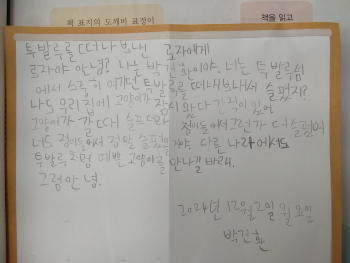 책 표지의 도깨비 표정이
책을 읽고
투발루를 떠나보낸 로자에게
로자야 안녕? 나는 박건환이야. 너는 투발루섬
에서 소중히 여기던 투발루를 떠나보내서 슬펐지?
나도 우리집에 고양이가 잠시 왔다 간적이 있어
고양이가 갈때 슬프더라 정이들어서그런가 더슬펐어
너도 정이들어서 정말 슬펐을거야. 다른 나라에서도
투발루처럼 예쁜 고양이를 만나길 바래.
그럼 안녕.
2024년 12월 2일 월요일
박건환